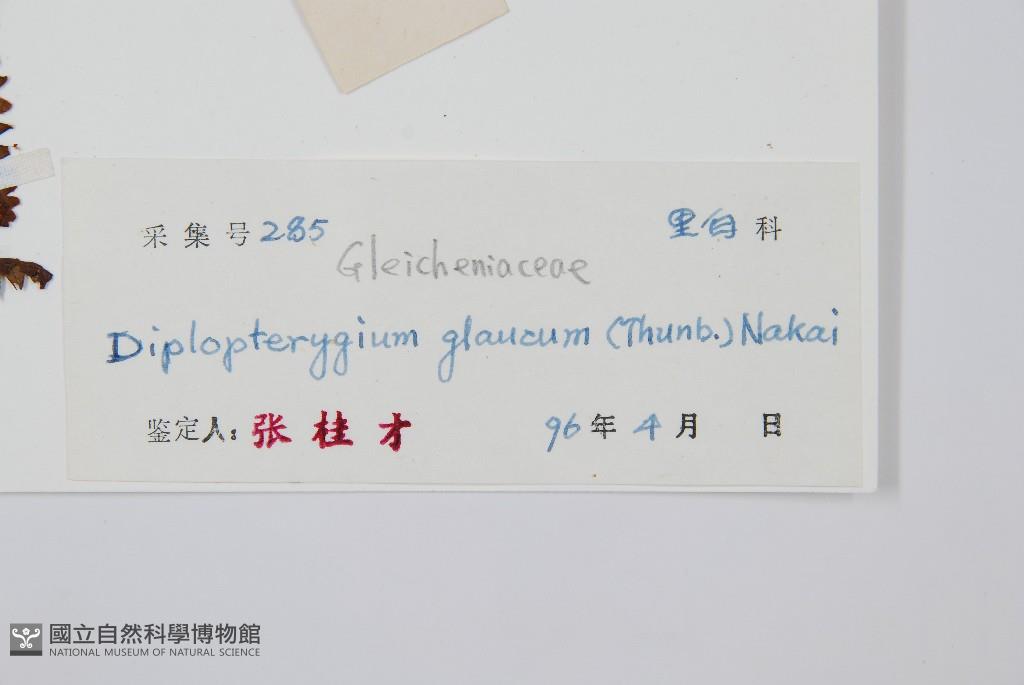 采集号285 里白科
Gleicheniaceae
Diplopterygium glaucum (Thunb.) Nakai
鉴定人：张桂才 96年4月 日
國立自然科學博物館
NATIONAL MUSEUM OF NATURAL SCIENCE